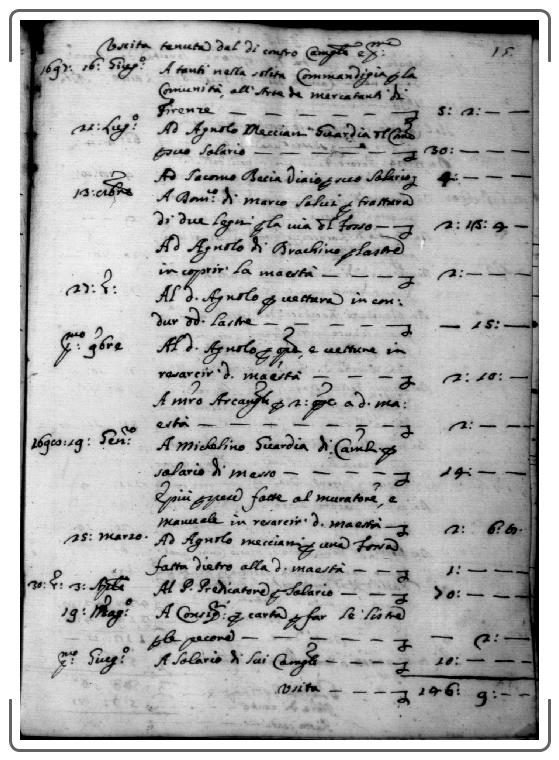 Uscita tenuta dal di contro Camarl:º 15
16: Giug:º A tanti nella solita Commandigia p la
Comunità, all'Arte de mercatanti di
Firenze — 5: 2: —
22: Lug:º Ad Agnolo Mecciani Guardia
p suo salario — 30: — —
Ad Iacomo p suo salario 4: — —
13: A di marco Salvi p trattura
di due Legni p la via del fosso — 2: 13: 4
Ad Agnolo di Brachino p lastre
in coprir la maestà — 2: — —
27: Al d. Agnolo p vettura in con:
dur dd. lastre — 15: —
p:mo 9bre Al d. Agnolo p opre, e vetture in
resarcir d. maestà — 2: 10: —
A mro Arcang:º p 2: opre a d. ma:
està — 2: — —
19: Gen:º A Michelino Guardia di p
salario di messo — 14: — —
E più p spese fatte al muratore, e
manuale in resarcir d. maestà — 2: 6: 8
25: Marzo. Ad Agnolo mecciani p una fossa
fatta dietro alla d. maestà — 1: — —
3: Aple Al P. Predicatore p salario — 70: — —
19: Mag:º A p carta p far le listre
p le pecore — 2: —
p:º Giug:º A Salario di lui Camarl:º 10: — —
Uscita — 146: 9: —